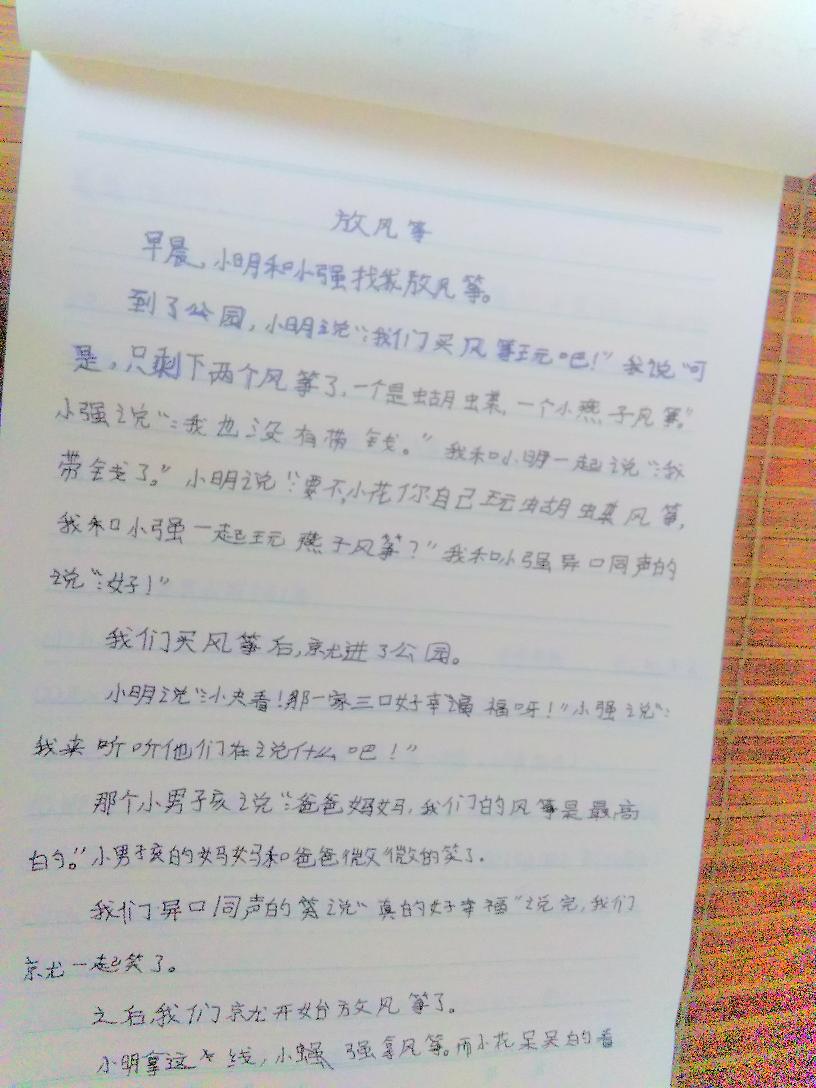 放风筝
早晨,小明和小强找我放风筝。
到了公园,小明说“:我们买风筝玩吧!”我说“可
是,只剩下两个风筝了,一个是蝴蝶,一个小燕子风筝。”
小强说“:我也没有带钱。”我和小明一起说“:我
带钱了。”小明说“:要不,小花你自己玩蝴蝶风筝,
我和小强一起玩燕子风筝?”我和小强异口同声的
说“:好!”
我们买风筝后,就进了公园。
小明说“:小央看!那一家三口好幸福呀!”小强说“:
我来听听他们在说什么吧!”
那个小男子孩说“:爸爸妈妈,我们的风筝是最高
的。”小男孩的妈妈和爸爸微微的笑了.
我们异口同声的笑说“真的好幸福”说完,我们
就一起笑了。
之后,我们就开始放风筝了。
小明拿这线,小强拿风筝。而小花呆呆的看